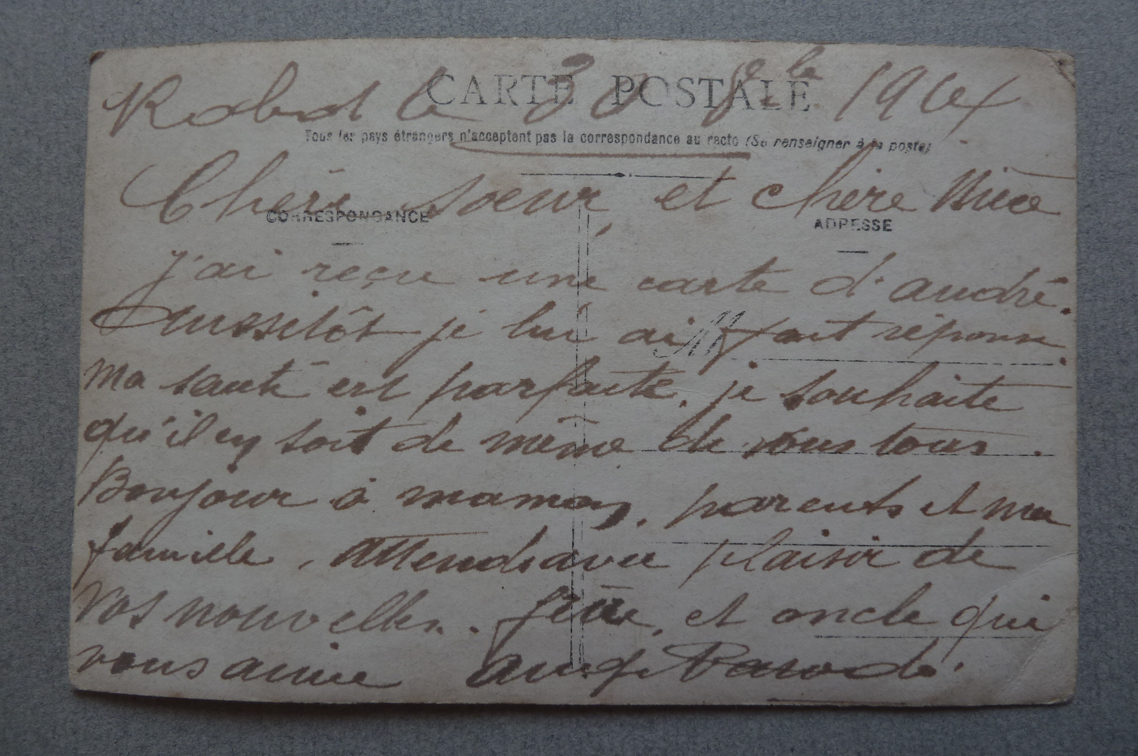 CARTE POSTALE
Rabat le 30 8bre 1914
Tous les pays étrangers n'acceptent pas la correspondance au recto (Se renseigner à la poste)
Chère soeur, et chère Nièce
CORRESPONDANCE
ADRESSE
J'ai reçu une carte d'andré.
Aussitôt je lui ai fait réponse.
M
Ma santé est parfaite, je souhaite
qu'il en soit de même de vous tous.
Bonjour à maman, parents et ma
famille, attends avec plaisir de
vos nouvelles. frère, et oncle qui
vous aime